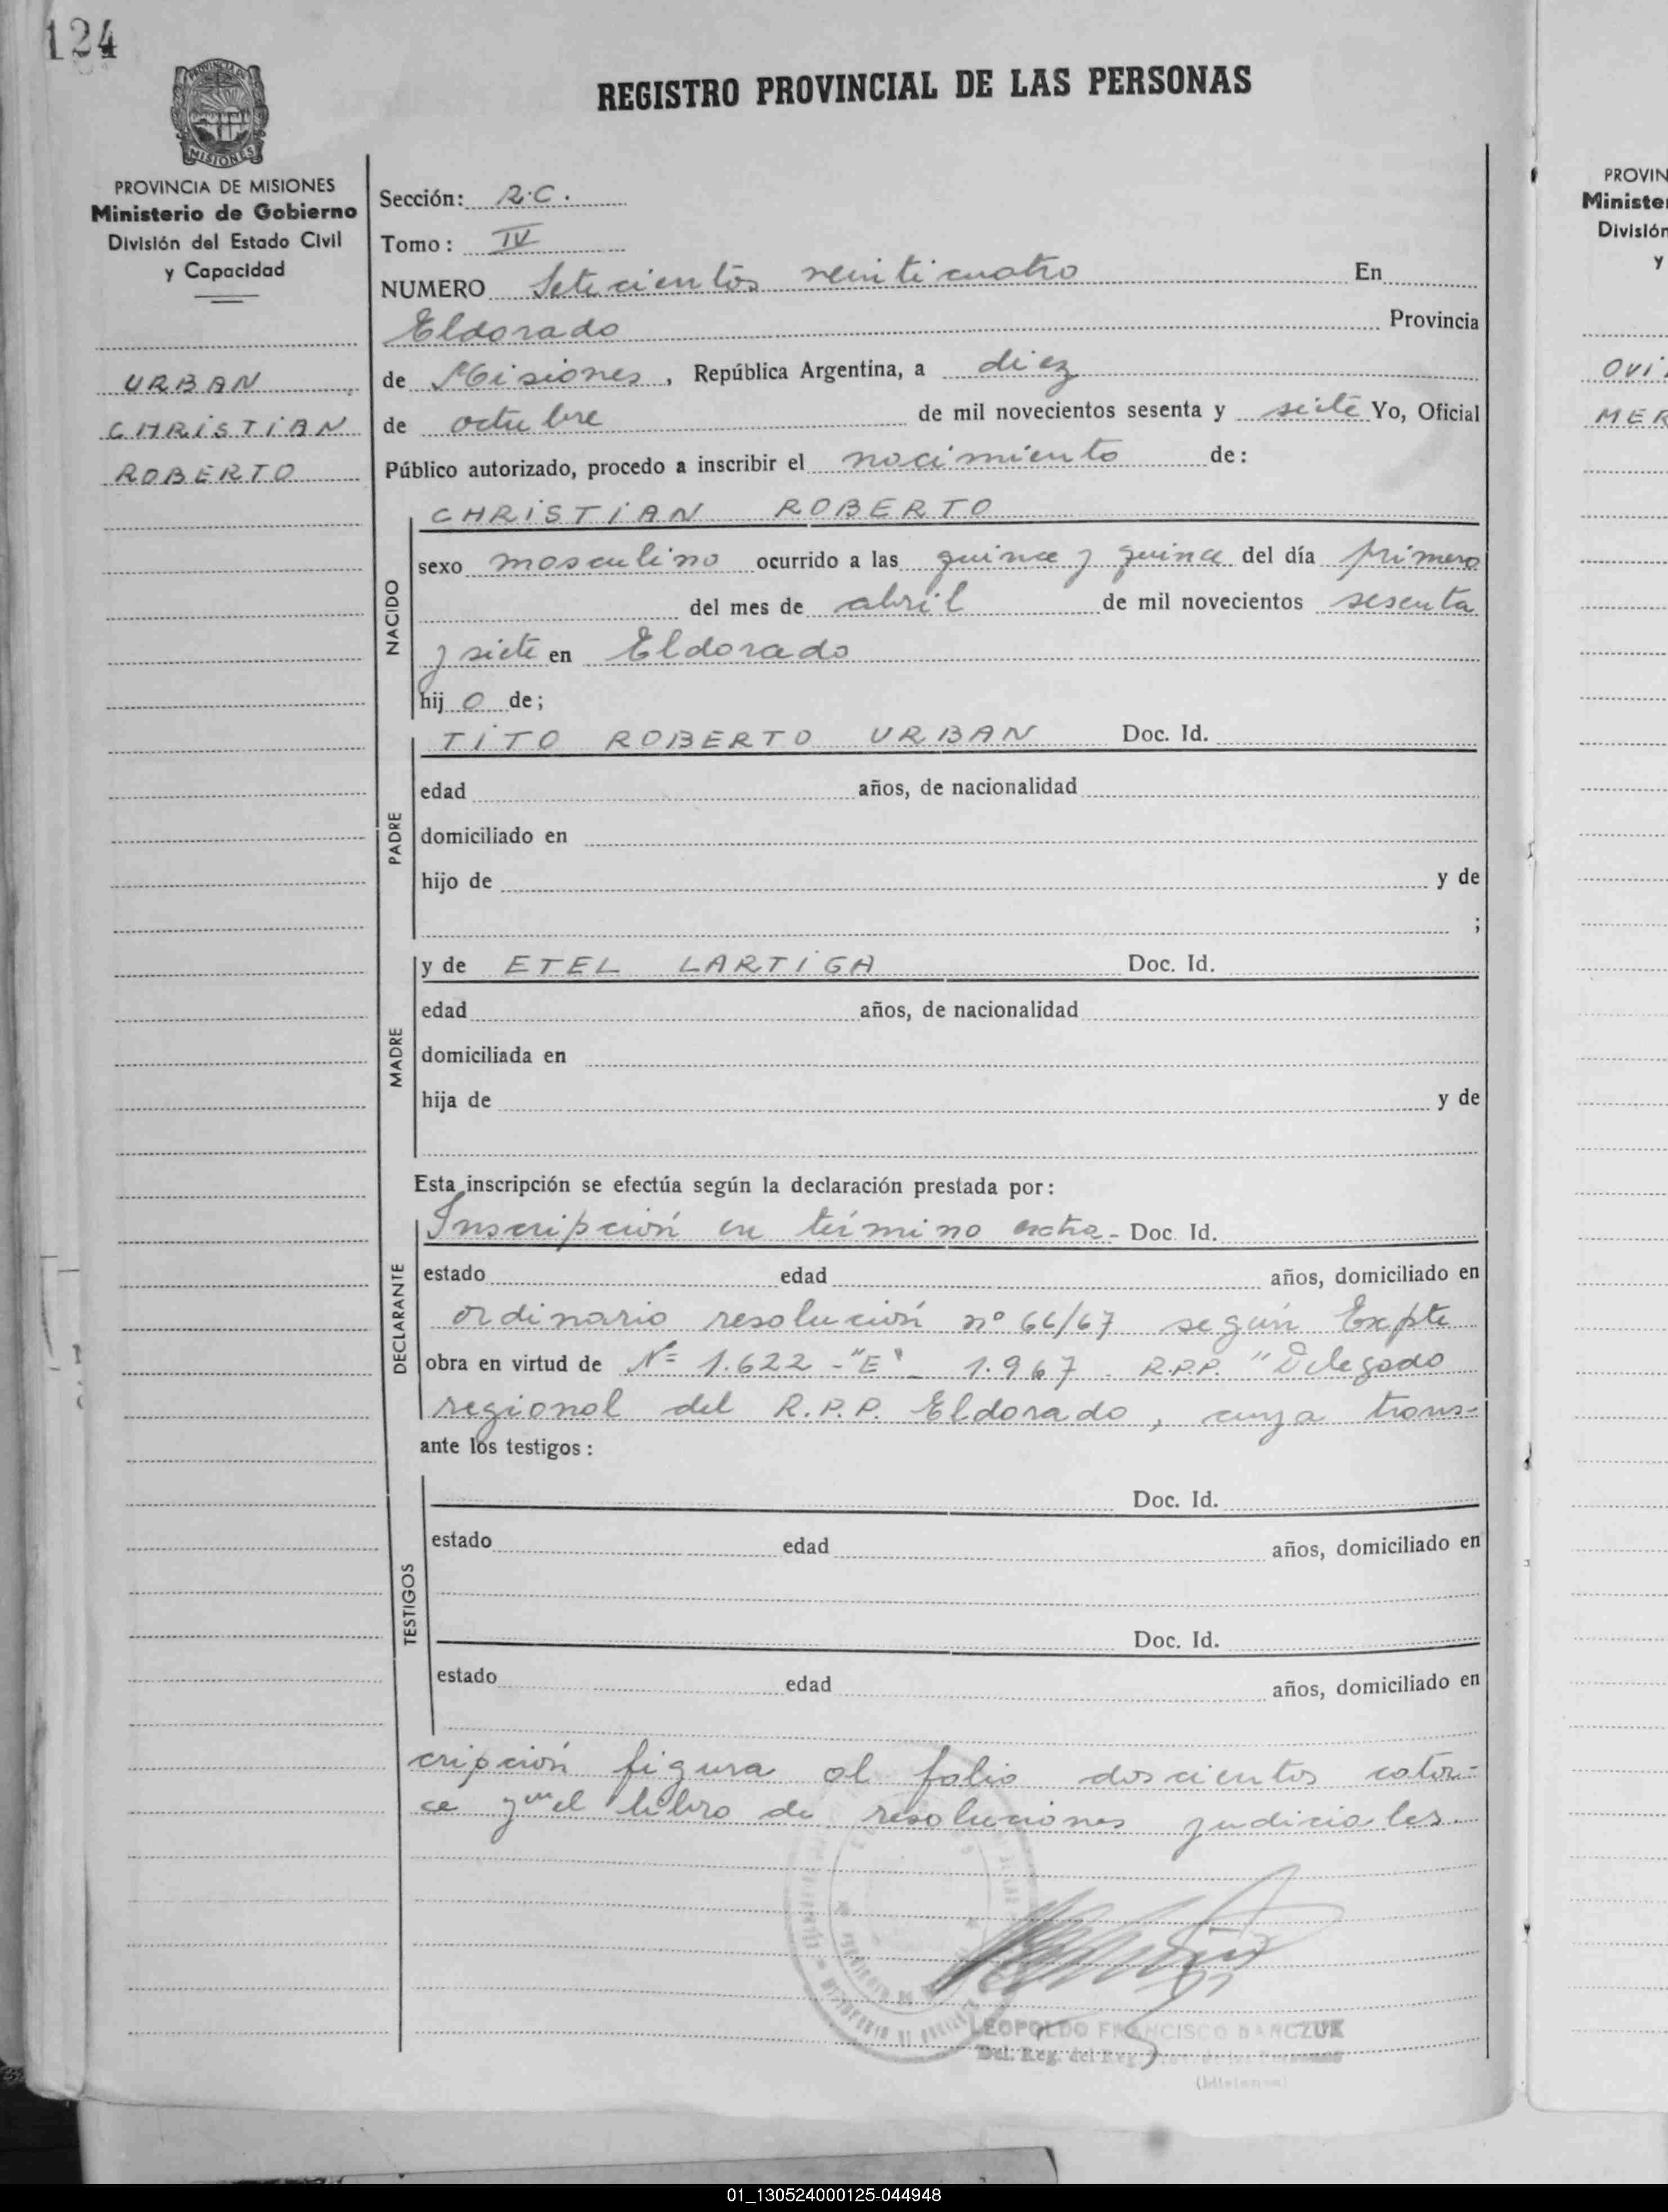 124
REGISTRO PROVINCIAL DE LAS PERSONAS
MISIONES
PROVINCIA DE MISIONES
Ministerio de Gobierno
División del Estado Civil
y Capacidad
URBAN
CHRiSTiAN
ROBERTO
Sección: R.C.
Tomo: IV
NUMERO Setecientos veinticuatro En
Eldorado Provincia
de Misiones, República Argentina, a diez
de octubre de mil novecientos sesenta y siete Yo, Oficial
Público autorizado, procedo a inscribir el nacimiento de:
NACIDO
CHRiSTiAN ROBERTO
sexo masculino ocurrido a las quince y quince del día primero
del mes de abril de mil novecientos sesenta
y siete en Eldorado
hij o de;
PADRE
TiTO ROBERTO URBAN Doc. Id.
edad años, de nacionalidad
domiciliado en
hijo de y de
;
MADRE
y de ETEL LARTiGA Doc. Id.
edad años, de nacionalidad
domiciliada en
hija de y de
Esta inscripción se efectúa según la declaración prestada por:
DECLARANTE
Inscripción en término extra- Doc. Id.
estado edad años, domiciliado en
ordinario resolución nº 66/67 según Expte
obra en virtud de Nº 1.622 -"E"- 1.967. R.P.P. "Delegado
regional del R.P.P. Eldorado, cuya trans-
ante los testigos:
TESTIGOS
Doc. Id.
estado edad años, domiciliado en
Doc. Id.
estado edad años, domiciliado en
cripción figura al folio doscientos cator-
ce del libro de resoluciones judiciales.
LEOPOLDO FRANCISCO DANCZUK
Del. Reg. del Reg.
(Misiones)
PROVIN
Minister
División
y
OVi
MER
01_130524000125-044948